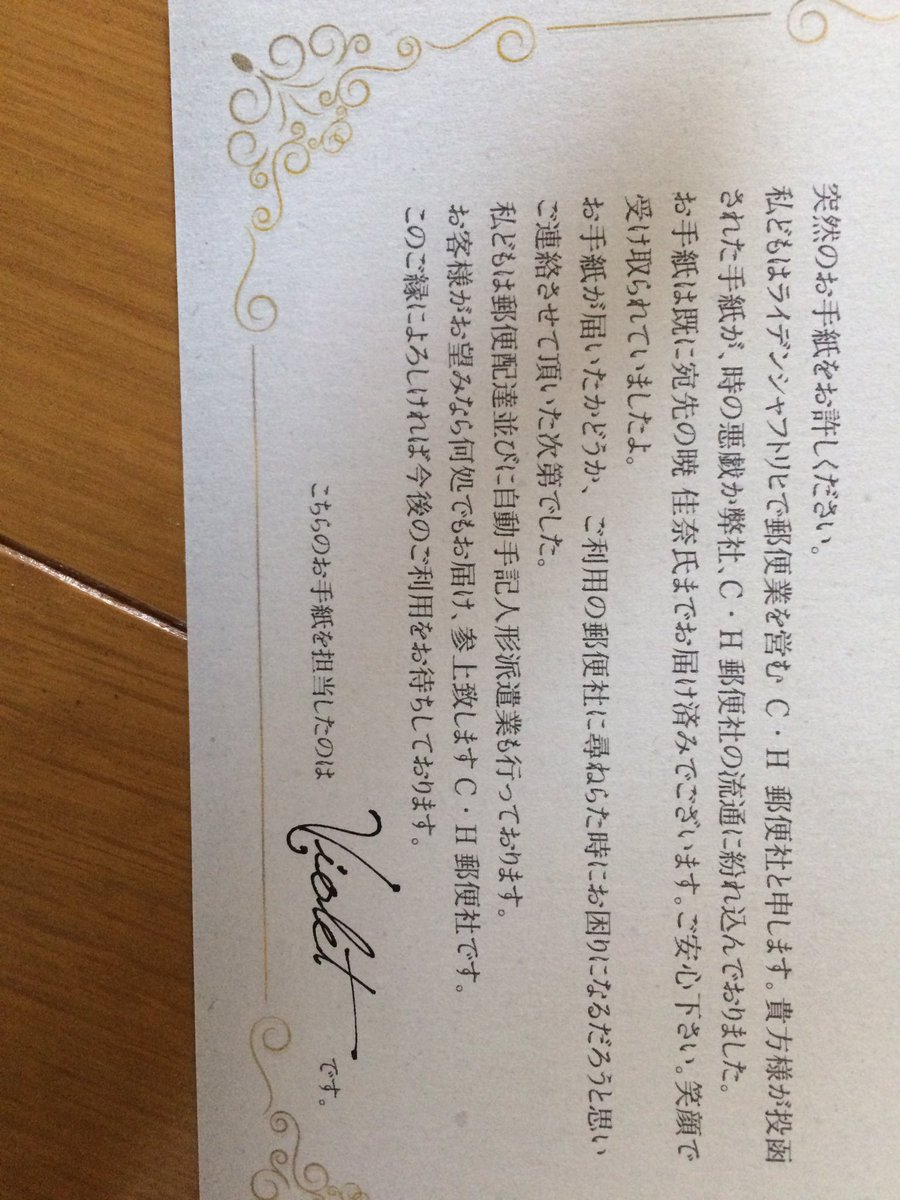 突然のお手紙をお許しください。
私どもはライデンシャフトリヒで郵便業を営む C・H 郵便社と申します。貴方様が投函
された手紙が、時の悪戯か弊社、C・H 郵便社の流通に紛れ込んでおりました。
お手紙は既に宛先の暁 佳奈氏までお届け済みでございます。ご安心下さい。笑顔で
受け取られていましたよ。
お手紙が届いたかどうか、ご利用の郵便社に尋ねらた時にお困りになるだろうと思い
ご連絡させて頂いた次第でした。
私どもは郵便配達並びに自動手記人形派遣業も行っております。
お客様がお望みなら何処でもお届け、参上致します C・H 郵便社です。
このご縁によろしければ今後のご利用をお待ちしております。
こちらのお手紙を担当したのは Violet です。